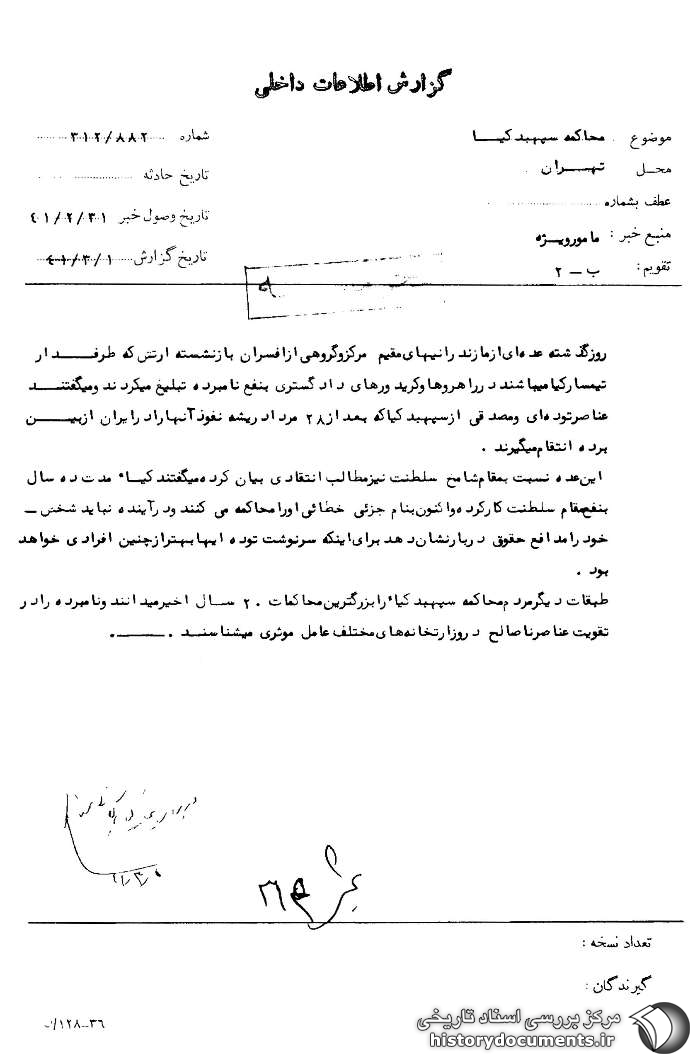 گزارش اطلاعات داخلی
موضوع : محاکمه سپهبد کیا
شماره ۳۱۲/۸۸۲
محل تهران
تاریخ حادثه
عطف بشماره
تاریخ وصول خبر ۴۱/۲/۳۱
منبع خبر : مامور ویژه
تاریخ گزارش ۴۱/۳/۱
تقویم : ب – ۲
روز گذشته عده‌ای از مازندرانیهای مقیم مرکز و گروهی از افسران بازنشسته ارتش که طرفدار
تیمسار کیا میباشند در راهروها و کریدورهای دادگستری بنفع نامبرده تبلیغ میکردند و میگفتند
عناصر توده‌ای و مصدقی از سپهبد کیا که بعد از ۲۸ مرداد ریشه نفوذ آنها را در ایران از بین
برده انتقام میگیرند .
این عده نسبت بمقام شامخ سلطنت نیز مطالب انتقادی بیان کرده میگفتند کیاء مدت ده سال
بنفع مقام سلطنت کار کرده و اکنون بنام جزئی خطائی او را محاکمه می کنند و در آینده نباید شخص –
خود را مدافع حقوق دربار نشان دهد برای اینکه سرنوشت توده ایها بهتر از چنین افرادی خواهد
بود .
طبقات دیگر مردم محاکمه سپهبد کیاء را بزرگترین محاکمات ۲۰ سال اخیر میدانند و نامبرده را در
تقویت عناصر ناصالح در وزارتخانه‌های مختلف عامل موثری میشناسند .
تعداد نسخه :
گیرندگان :
۱۲۸–۳۶
مرکز بررسی اسناد تاریخی
historydocuments.ir